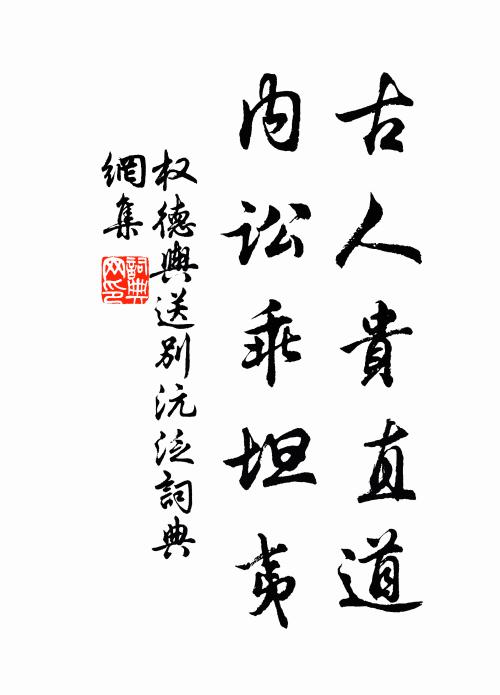 古人貴直道
内訟乖坦夷
权德輿送别沅泛詞典
網集
詞典
网印